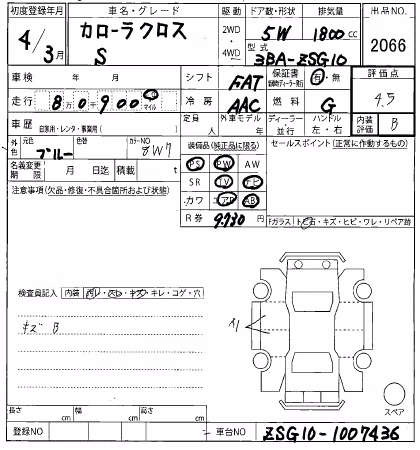 初度登録年月 車名・グレード 駆動 ドア数・形状 排気量 出品NO
4/3月 カローラクロス S 2WD・4WD 5W 1800cc 2066
型式 3BA-ZSG10
車検 年 月 シフト FAT 保証書 有・無 評価点 4.5
走行 8万0千900 Km マイル 冷房 AAC 燃料 G
車歴 自家用・レンタ・事業用( ) 定員 人 外車モデル 年 ディーラー・並行 ハンドル 左・右 内装評価 B
外色 元色 ブルー 色替 カラーNO 8W7 装備品(純正品に限る) セールスポイント(正常に作動するもの)
名義変更期限 月 日迄 積載 t PS PW AW
注意事項(欠品・修復・不具合箇所および状態) SR TV ナビ
カワ エアB AB
R券 9,730 円 Fガラス・トビ石・キズ・ヒビ・ワレ・リペア跡
検査員記入 内装 汚レ・スレ・キズ・キレ・コゲ・穴
キズ B
A1
スペア
長さ cm 幅 cm 高さ cm
登録NO 車台NO ZSG10-1007436